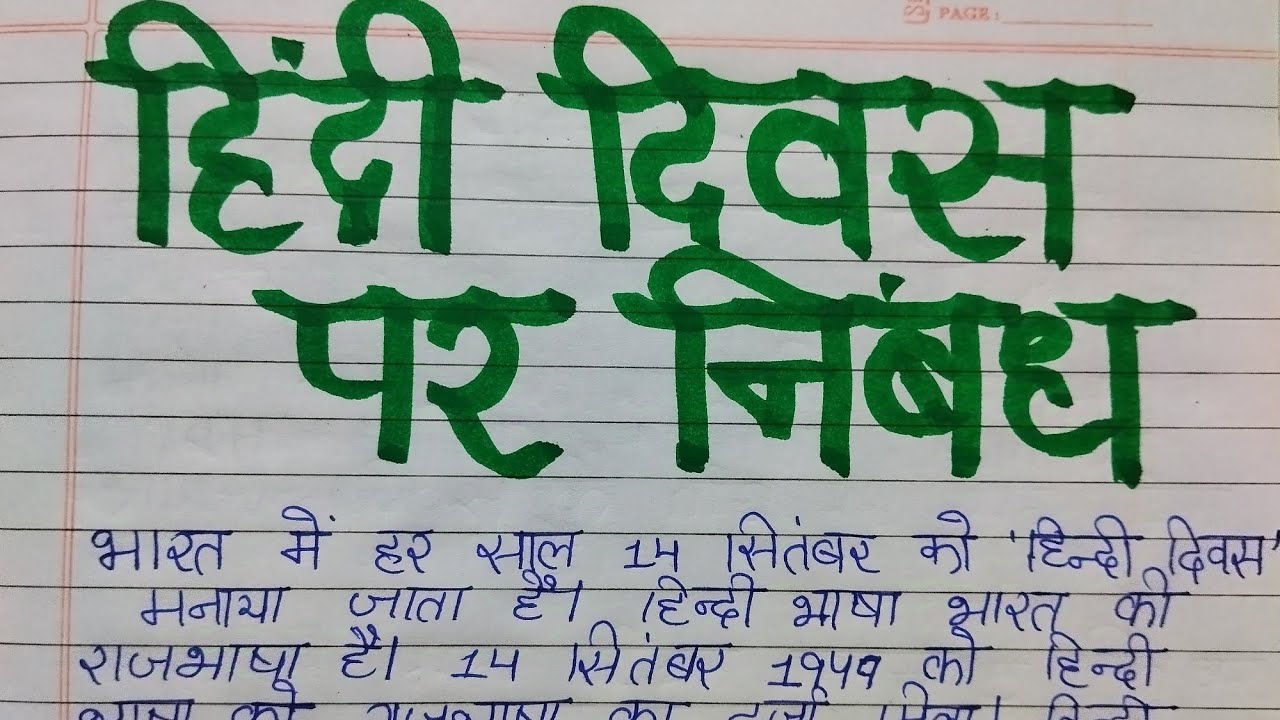 PAGE:
हिंदी दिवस
पर निबंध
भारत में हर साल 14 सितंबर को 'हिन्दी दिवस'
मनाया जाता है। हिन्दी भाषा भारत की
राजभाषा है। 14 सितंबर 1949 को हिन्दी
भाषा को राजभाषा का दर्जा मिला। हिन्दी